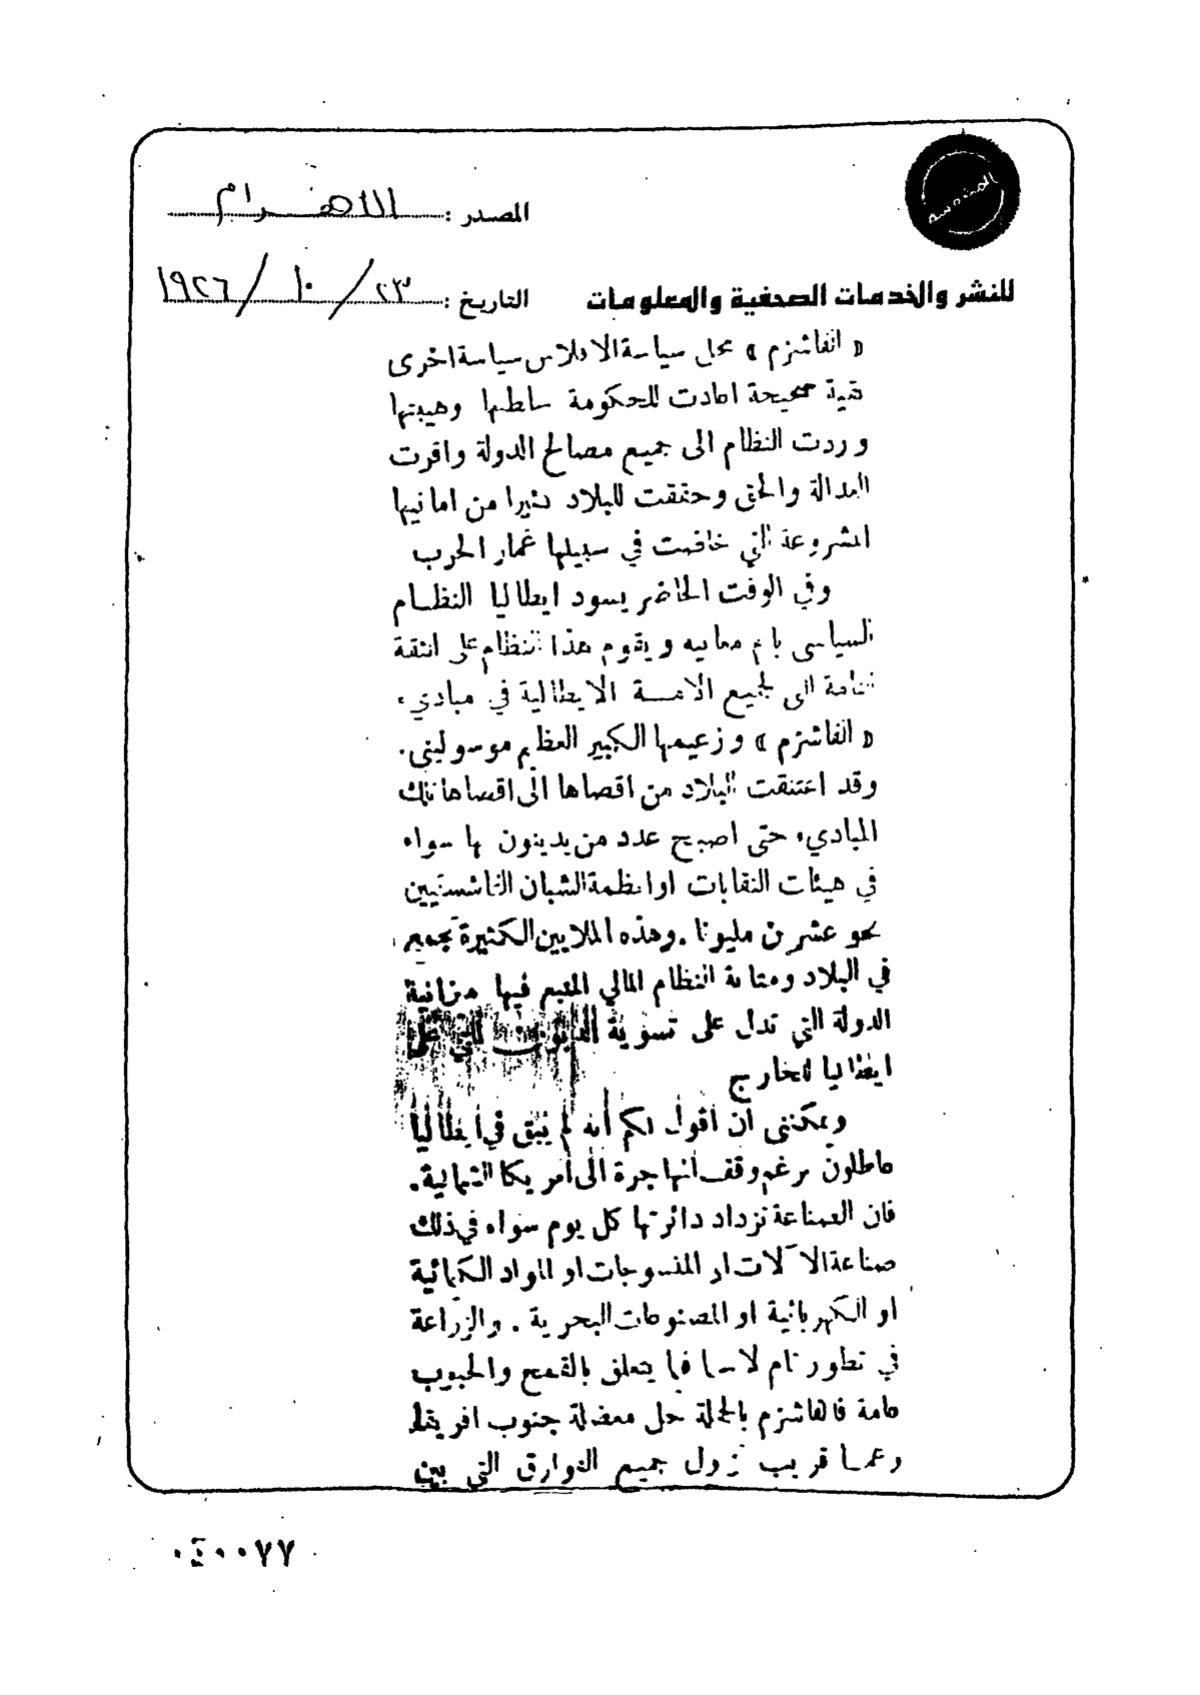 المصدر : الاهرام
للنشر والخدمات الصحفية والمعلومات
التاريخ : ٢٣ / ١٠ / ١٩٢٦
« الفاشزم » محل سياسة الافلاس سياسة اخرى
صحيحة اعادت للحكومة سلطتها وهيبتها
وردت النظام الى جميع مصالح الدولة واقرت
العدالة والحق وحققت للبلاد كثيرا من امانيها
المشروعة التي خاضت في سبيلها غمار الحرب
وفي الوقت الحاضر يسود ايطاليا النظام
السياسى باتم معانيه ويقوم هذا النظام على الثقة
التامة التى لجميع الامة الايطالية في مبادىء
« الفاشزم » وزعيمها الكبير العظيم موسولينى .
وقد اعتنقت البلاد من اقصاها الى اقصاها تلك
المبادىء حتى اصبح عدد من يدينون بها سواء
في هيئات النقابات او انظمة الشبان الفاشستيين
نحو عشرين مليونا . وهذه الملايين الكثيرة
في البلاد ومتانة النظام المالي المتبع فيها ميزانية
الدولة التي تدل على تسوية الديون التي على
ايطاليا للخارج
ويمكننى ان اقول لكم أنه لم يبق في ايطاليا
عاطلون برغم وقف المهاجرة الى أمريكا الشمالية .
فان الصناعة تزداد دائرتها كل يوم سواء في ذلك
صناعة الآلات او المنسوجات او المواد الكيمائية
او الكهربائية او المصنوعات البحرية . والزراعة
في تطور تام لاسيما فيما يتعلق بالقمح والحبوب
عامة فالفاشزم بالجملة حل معضلة جنوب افريقيا
وعما قريب تزول جميع الفوارق التي بين
٠٤٠٠٧٧